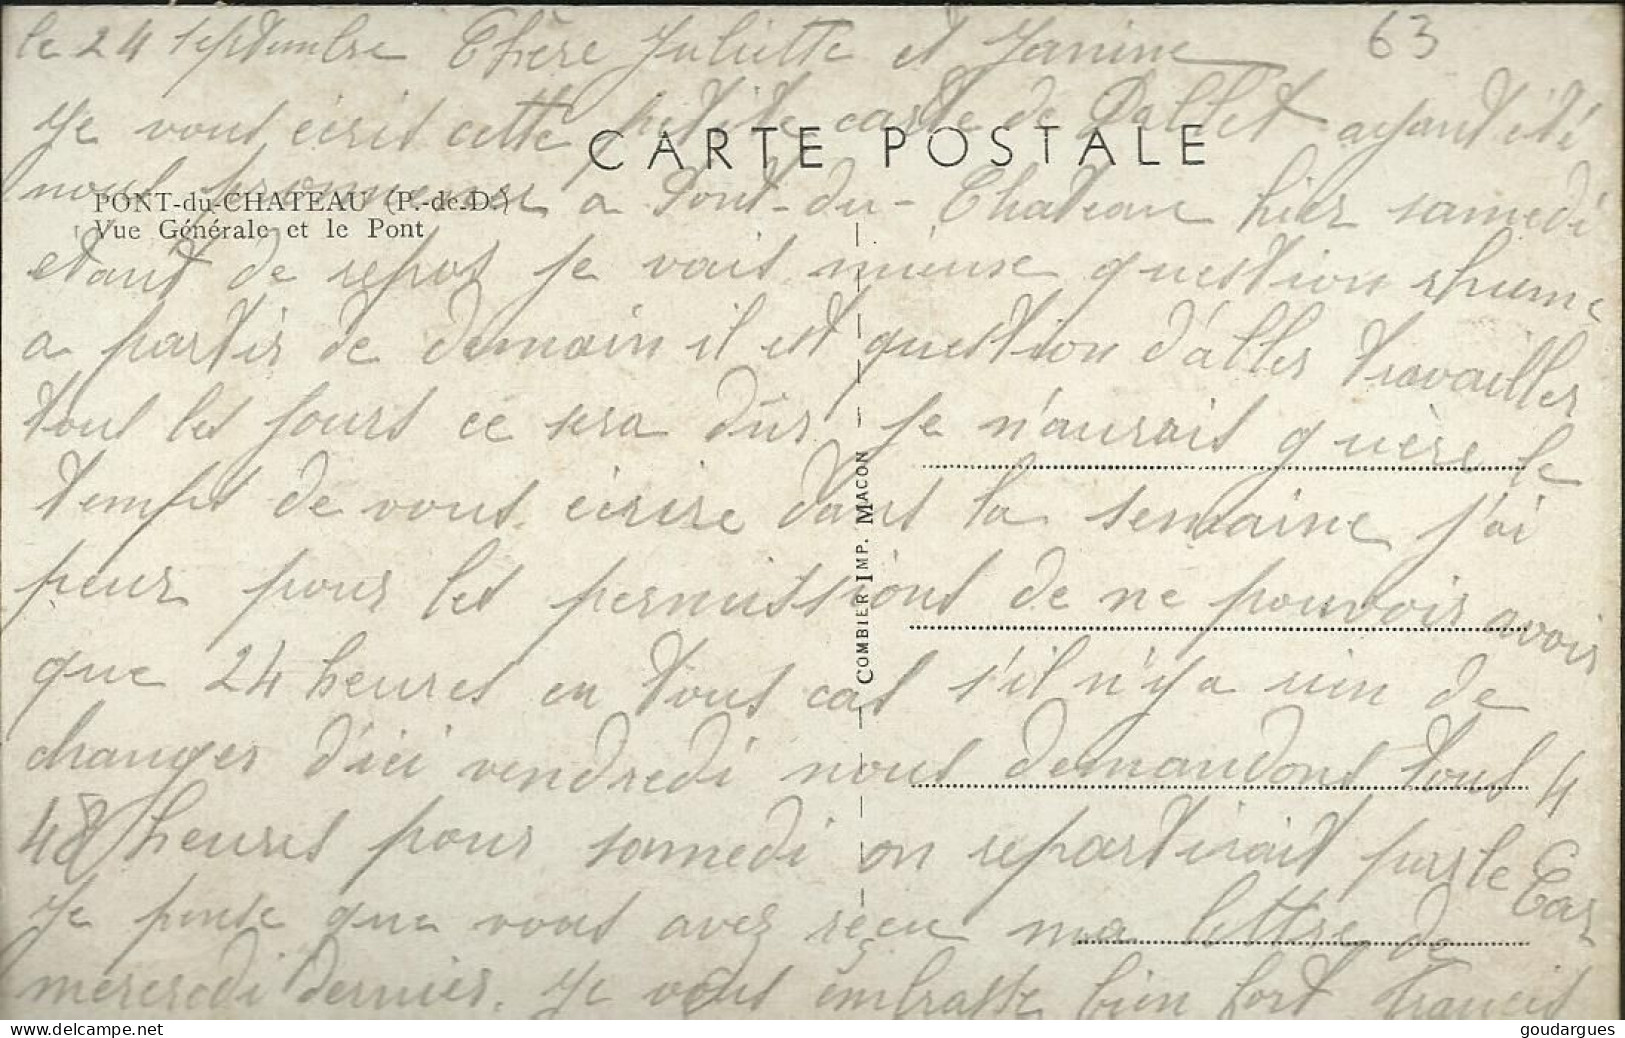 63
le 24 septembre Chère Juliette et Janine
Je vous écris cette petite carte de Dallet ayant été
CARTE POSTALE
nous promener a Pont-du-Chateau hier samedi
PONT-du-CHATEAU (P.-de-D.)
Vue Générale et le Pont
etant de repos je vais mieux question rhume
a partir de demain il est question d'aller travailler
tous les jours ce sera dûr je n'aurais guère le
temps de vous écrire dans la semaine j'ai
peur pour les permissions de ne pouvoir avoir
que 24 heures en tous cas s'il n'y a rien de
changer d'ici vendredi nous demandons tous 4
48 heures pour samedi on repartirait par le Car
Je pense que vous avez reçu ma lettre de
mercredi dernier. Je vous embrasse bien fort Francis
COMBIER IMP. MACON
goudargues